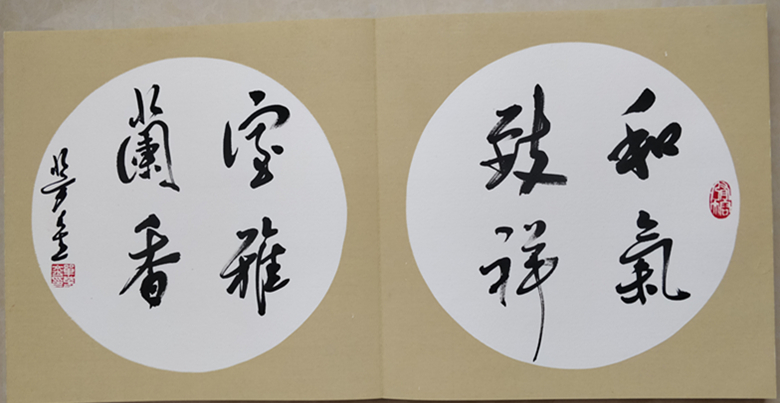 和氣
致祥
室雅
蘭香